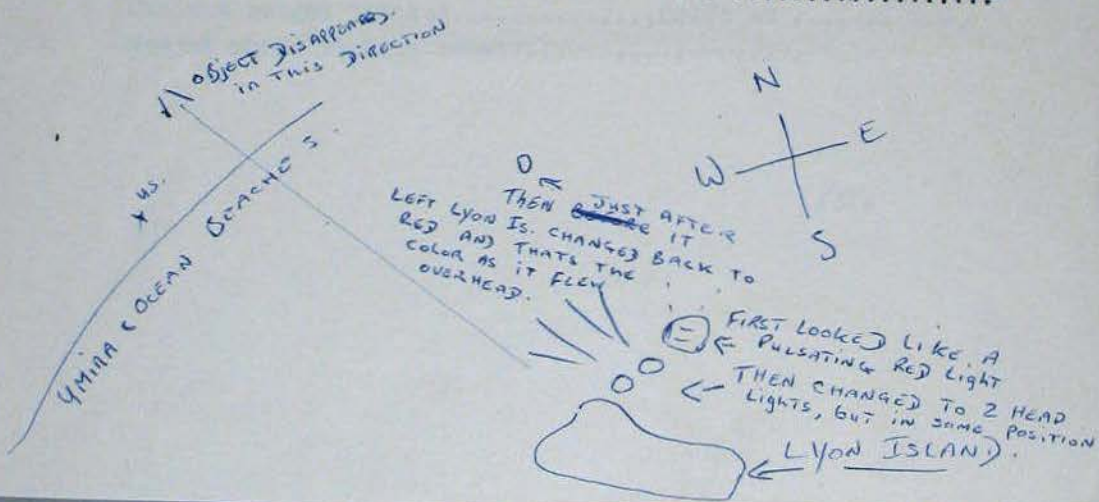 OBJECT DISAPPEARED.
in THIS DIRECTION
x us.
& OCEAN BEACHES
N
W E
S
THEN JUST AFTER
LEFT LYON IS. CHANGED BACK TO
RED AND THATS THE
COLOR AS IT FLEW
OVERHEAD.
IT
FIRST LOOKED LIKE A
PULSATING RED Light
THEN CHANGED TO 2 HEAD
Lights, but in SAME POSITION
LYON ISLAND.